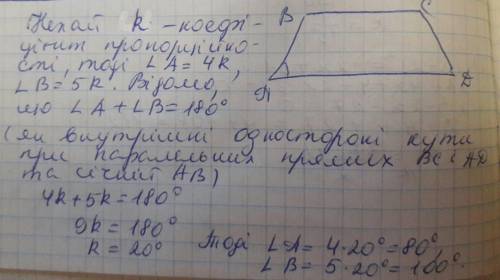 Нехай k - коефі-
цієнт пропорційно-
сті, тоді ∠A = 4k,
∠B = 5k. Відомо,
що ∠A + ∠B = 180°
(як внутрішні односторонні кути
при паралельних прямих BC і AD
та січній AB)
4k + 5k = 180°
9k = 180°
k = 20°
Тоді ∠A = 4·20° = 80°,
∠B = 5·20° = 100°.
B C
A D